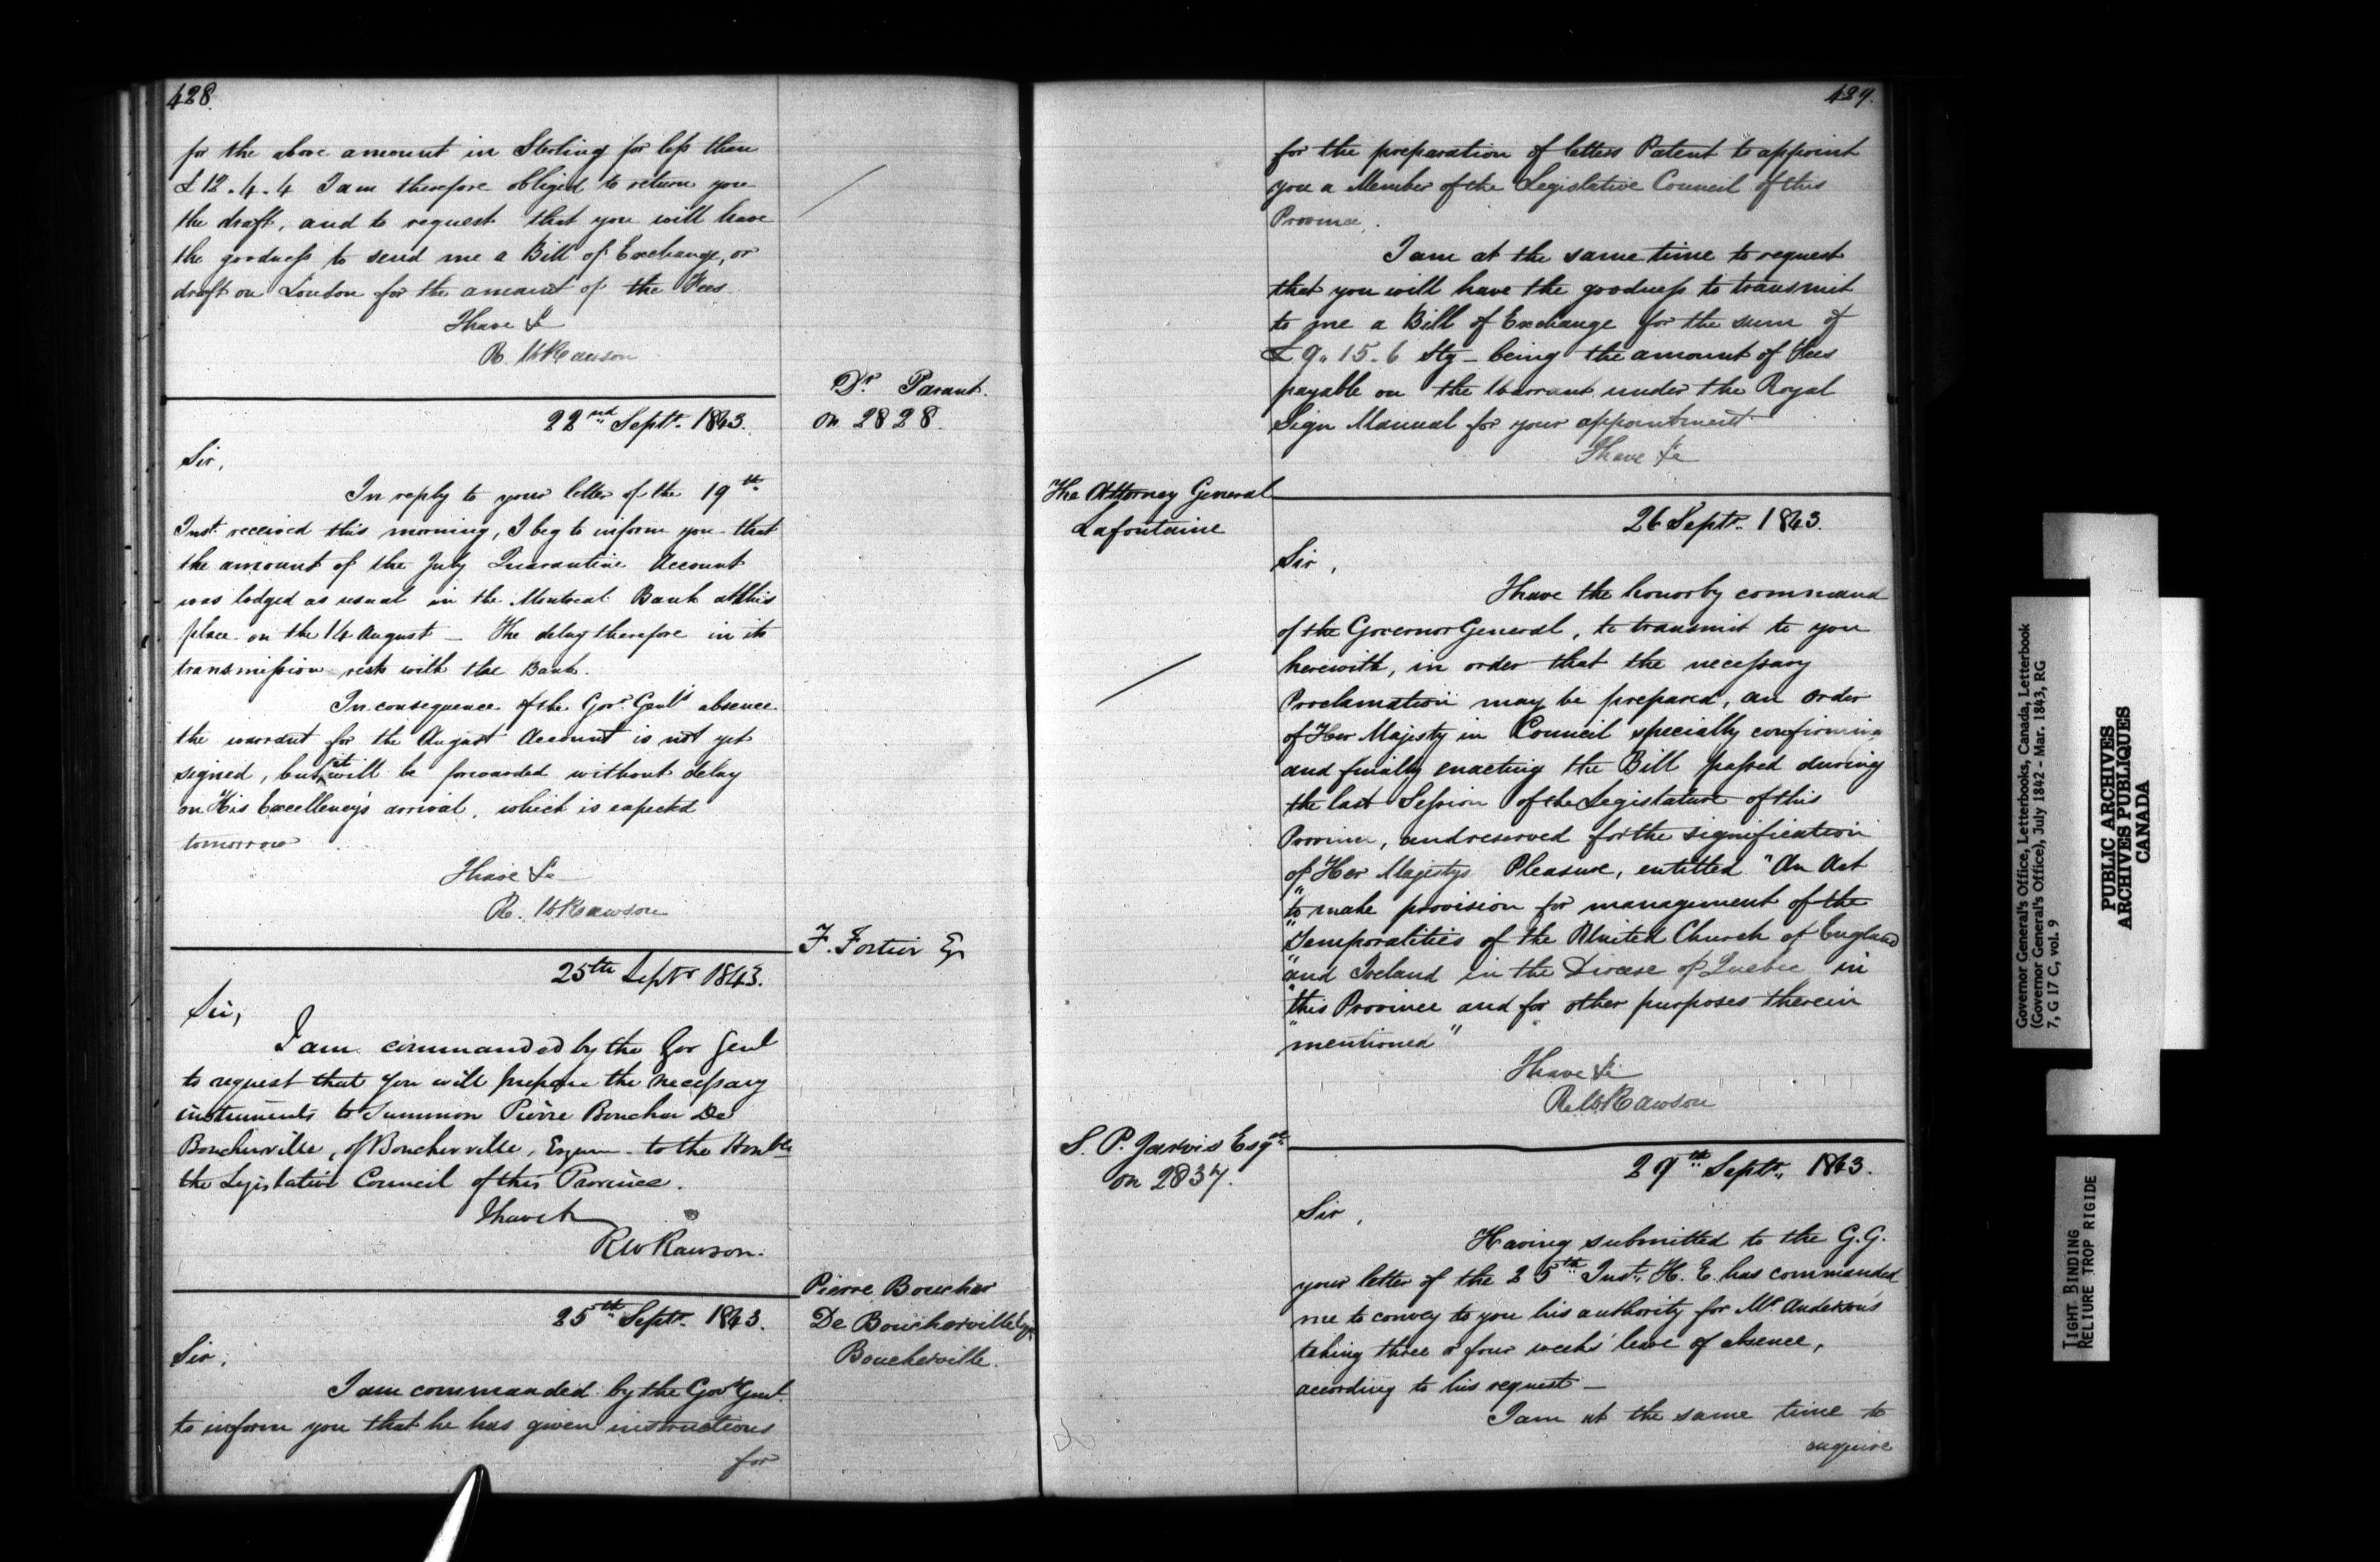 428.
for the above amount in Sterling for less than
£12.4.4 I am therefore obliged to return you
the draft, and to request that you will have
the goodness to send me a Bill of Exchange, or
draft on London for the amount of the Fees
I have &c
R. W Rawson
Dr. Parant.
on 2828.
22nd Septr. 1843.
Sir,
In reply to your letter of the 19th
Inst. received this morning, I beg to inform you that
the amount of the July Quarantine Account
was lodged as usual in the Montreal Bank at this
place on the 14 August — The delay therefore in its
transmission rests with the Bank.
In consequence of the Govr. Genl's absence
the warrant for the August Account is not yet
signed, but it will be forwarded without delay
on His Excellency's arrival, which is expected
tomorrow
I have &c
R. W Rawson
F. Fortier Eqr
25th Septr 1843.
Sir,
I am commanded by the Gov Genl
to request that you will prepare the necessary
instruments to Summon Pierre Boucher De
Boucherville, of Boucherville, Esquire to the Honble
the Legislative Council of this Province.
I have &c
RW Rawson.
Pierre Boucher
De Boucherville Eqr
Boucherville.
25th Septr. 1843.
Sir,
I am commanded by the Govr Genl.
to inform you that he has given instructions
for
429.
for the preparation of letters Patent to appoint
you a Member of the Legislative Council of this
Province.
I am at the same time to request
that you will have the goodness to transmit
to me a Bill of Exchange for the sum of
£9.15.6 Stg — being the amount of Fees
payable on the Warrant under the Royal
Sign Manual for your appointment
I have &c
The Attorney General
Lafontaine
26 Septr. 1843.
Sir,
I have the honor by command
of the Governor General, to transmit to you
herewith, in order that the necessary
Proclamation may be prepared, an order
of Her Majesty in Council specially confirming
and finally enacting the Bill passed during
the last Session of the Legislature of this
Province, and reserved for the signification
of Her Majestys Pleasure, entitled "An Act
"to make provision for management of the
"Temporalities of the United Church of England
"and Ireland in the Diocese of Quebec in
"this Province and for other purposes therein
"mentioned"
I have &c
R. W. Rawson
S. P. Jarvis Esqre
on 2837.
29th Septr. 1843.
Sir,
Having submitted to the G.G.
your letter of the 25th Inst. H. E. has commanded
me to convey to you his authority for Mr Anderson's
taking three or four weeks' leave of absence,
according to his request —
I am at the same time to
enquire
Governor General's Office, Letterbooks, Canada, Letterbook
(Governor General's Office), July 1842 - Mar. 1843, RG
7, G 17 C, vol. 9
PUBLIC ARCHIVES
ARCHIVES PUBLIQUES
CANADA
TIGHT BINDING
RELIURE TROP RIGIDE